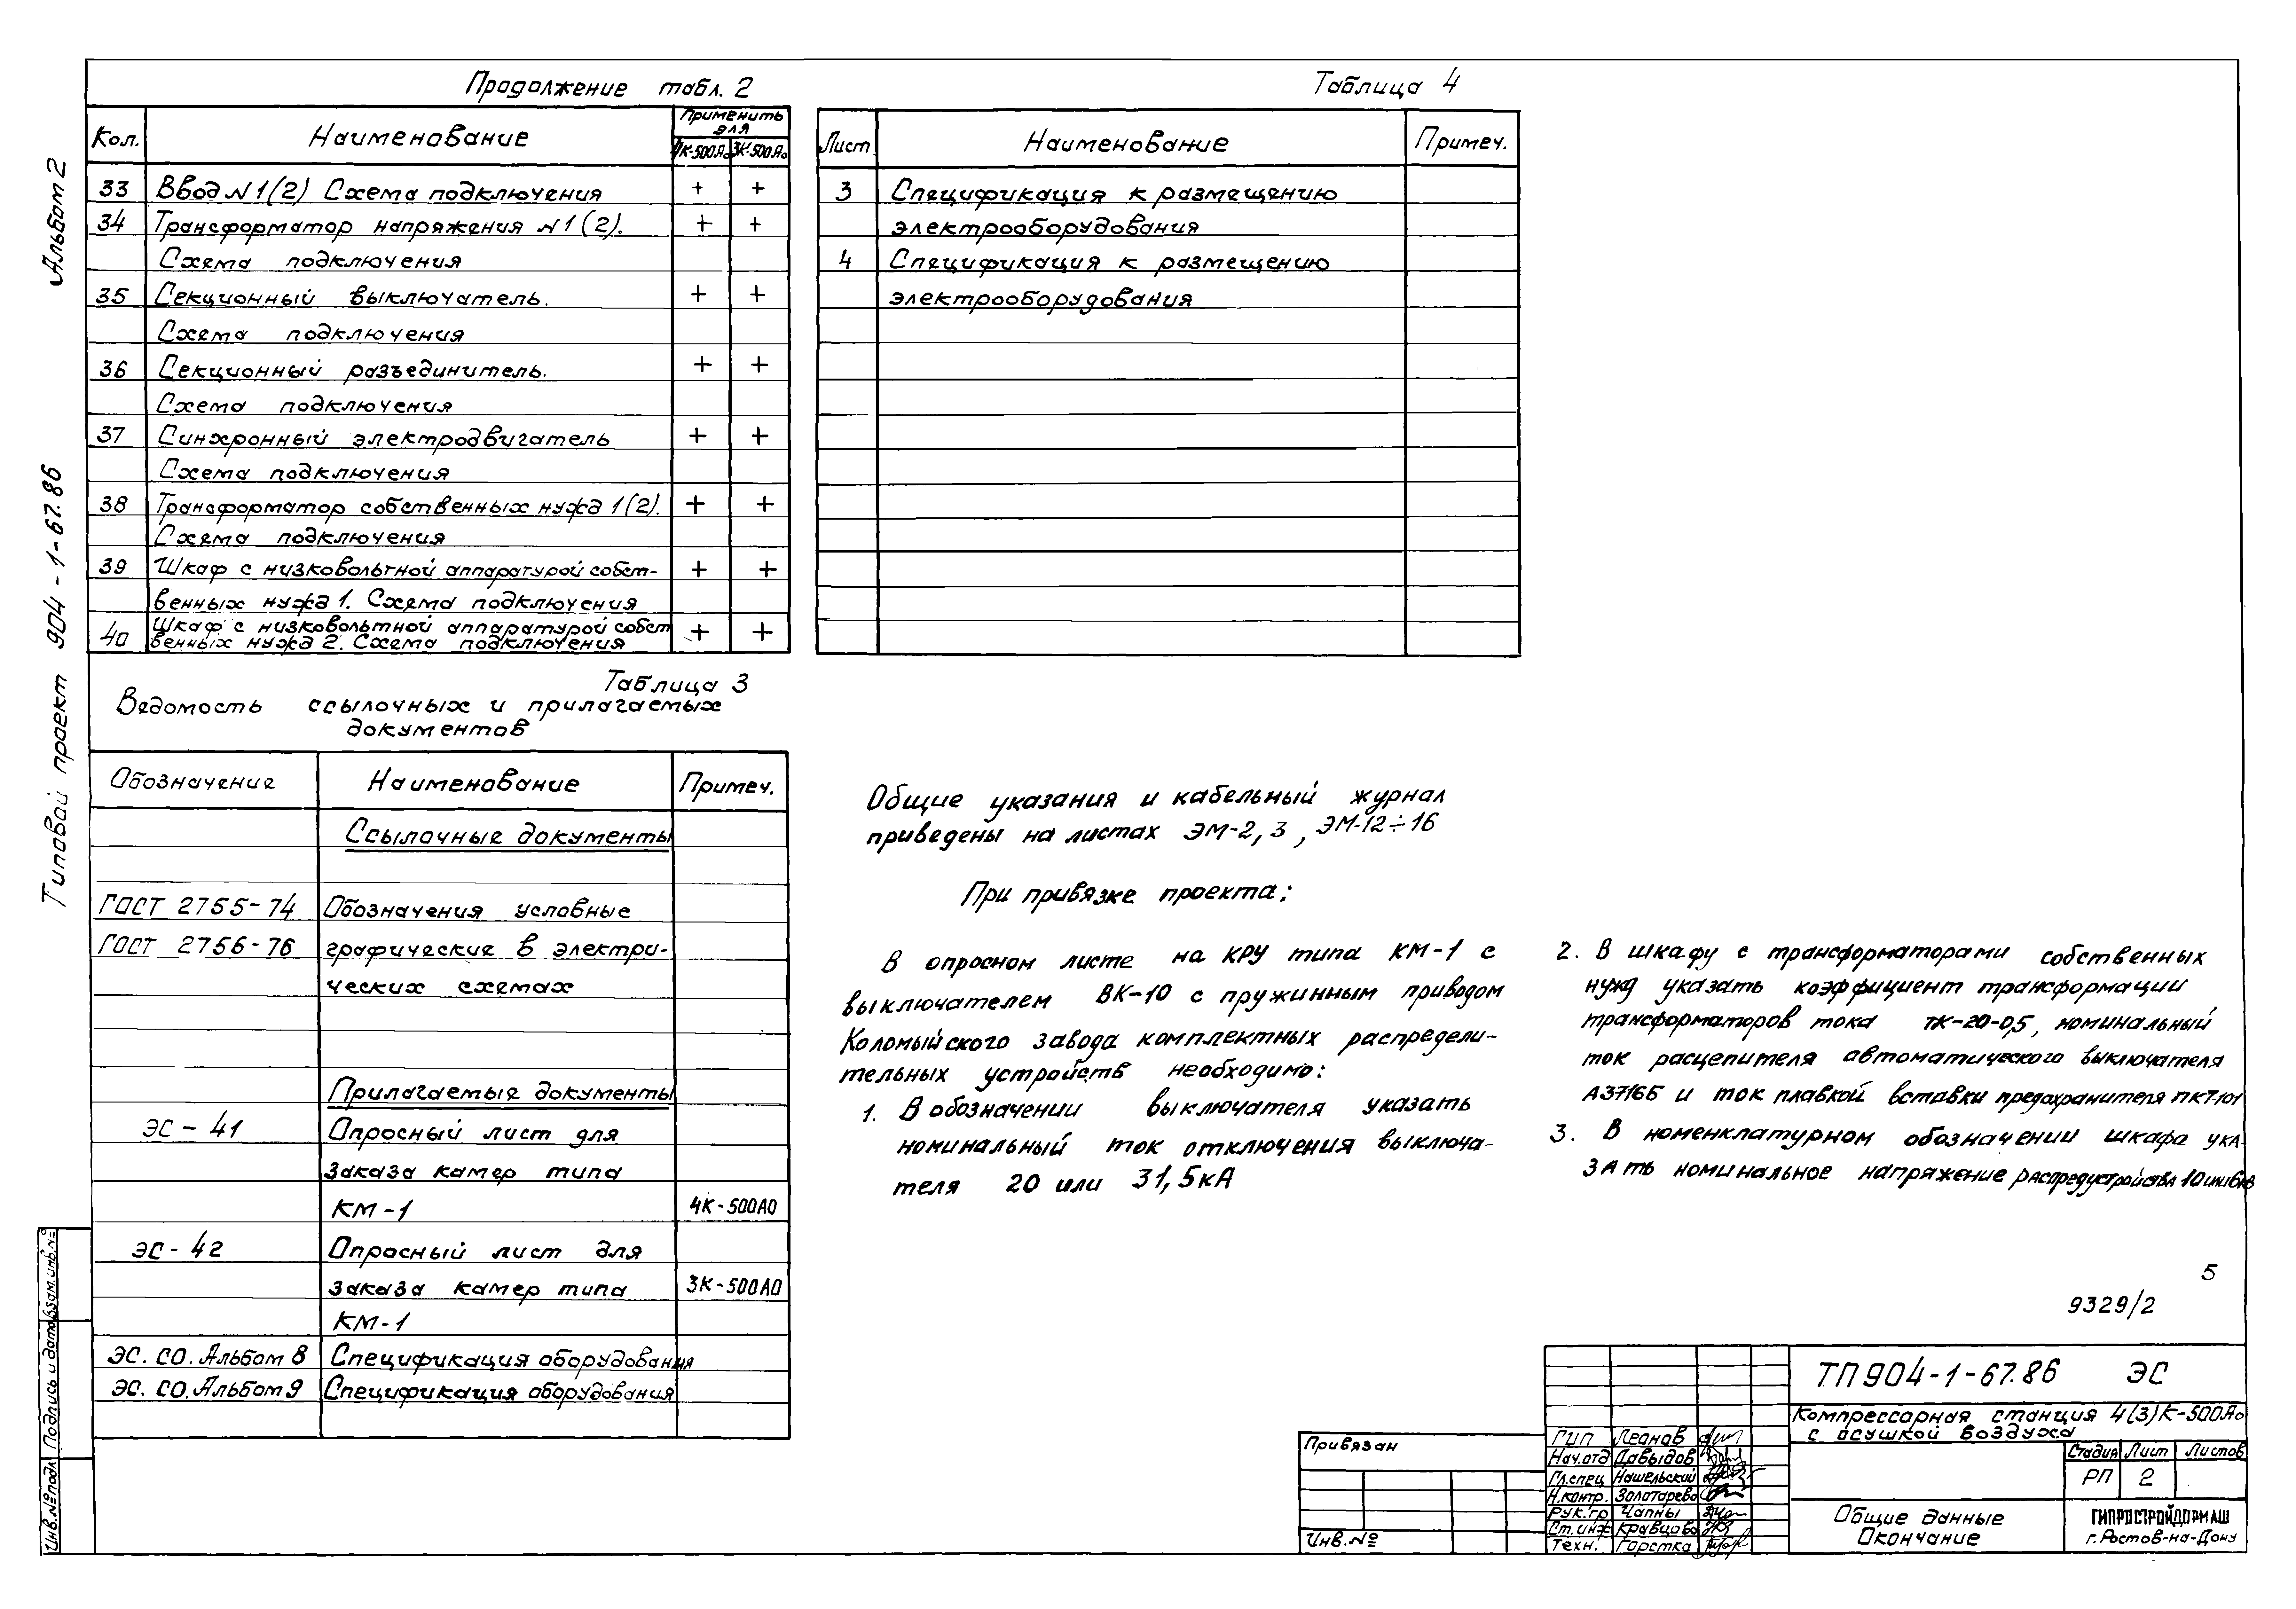 Альбом 2
Типовой проект 904-1-67.86
Продолжение табл. 2
Кол. Наименование Применить для
4К-500А₀ 3К-500А₀
33 Ввод N1(2) Схема подключения + +
34 Трансформатор напряжения N1(2). + +
Схема подключения
35 Секционный выключатель. + +
Схема подключения
36 Секционный разъединитель. + +
Схема подключения
37 Синхронный электродвигатель + +
Схема подключения
38 Трансформатор собственных нужд 1(2). + +
Схема подключения
39 Шкаф с низковольтной аппаратурой собст- + +
венных нужд 1. Схема подключения
40 Шкаф с низковольтной аппаратурой собст + +
венных нужд 2. Схема подключения
Таблица 4
Лист Наименование Примеч.
3 Спецификация к размещению
электрооборудования
4 Спецификация к размещению
электрооборудования
Таблица 3
Ведомость ссылочных и прилагаемых
документов
Обозначение Наименование Примеч.
Ссылочные документы
ГОСТ 2755-74 Обозначения условные
ГОСТ 2756-76 графические в электри-
ческих схемах
Прилагаемые документы
ЭС-41 Опросный лист для
заказа камер типа
КМ-1 4К-500А0
ЭС-42 Опросный лист для
заказа камер типа 3К-500А0
КМ-1
ЭС.СО.Альбом 8 Спецификация оборудования
ЭС.СО.Альбом 9 Спецификация оборудования
Общие указания и кабельный журнал
приведены на листах ЭМ-2, 3, ЭМ-12÷16
При привязке проекта:
В опросном листе на КРУ типа КМ-1 с
выключателем ВК-10 с пружинным приводом
Коломыйского завода комплектных распредели-
тельных устройств необходимо:
1. В обозначении выключателя указать
номинальный ток отключения выключа-
теля 20 или 31,5кА
2. В шкафу с трансформаторами собственных
нужд указать коэффициент трансформации
трансформаторов тока ТК-20-0,5, номинальный
ток расцепителя автоматического выключателя
А3716Б и ток плавкой вставки предохранителя ПКТ-101
3. В номенклатурном обозначении шкафа ука-
зать номинальное напряжение распредустройства 10 или 6кВ
5
9329/2
ТП904-1-67.86 ЭС
Компрессорная станция 4(3)К-500А₀
с осушкой воздуха
Стадия Лист Листов
РП 2
Общие данные
Окончание
ГИПРОСТРОЙДОРМАШ
г.Ростов-на-Дону
ГИП Леонов
Нач.отд Давыдов
Гл.спец Нашельский
Н.контр. Золотарева
Рук.гр Чапны
Ст.инж Кравцова
Техн. Горстка
Привязан
Инв.№
Инв.№подл Подпись и дата Взам.инв.№